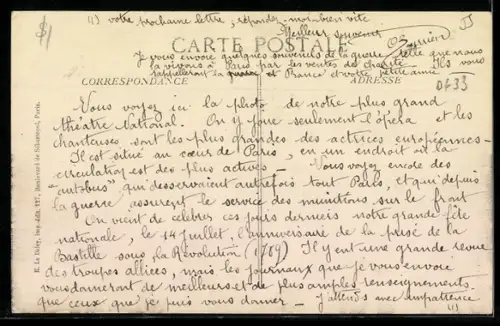 (1) votre prochaine lettre, répondez-moi bien vite
Meilleur souvenir
Je vous envoie quelques souvenirs de la guerre
CARTE POSTALE
à Paris par les ventes de charité. Ils vous
rappelleront la guerre et France et votre petite amie
CORRESPONDANCE
ADRESSE
Vous voyez ici la photo de notre plus grand
théâtre National. On y joue seulement l'opéra et les
chanteuses sont les plus grandes des actrices européennes -
Il est situé au cœur de Paris, en un endroit où la
circulation est des plus actives - Vous voyez encore des
"autobus" qui desservaient autrefois tout Paris, et qui depuis
la guerre assurent le service des munitions sur le front
On vient de célébrer ces jours derniers notre grande fête
nationale, le 14 juillet, l'anniversaire de la prise de la
Bastille sous la Révolution (1789) Il y eut une grande revue
des troupes alliées, mais les journaux que je vous envoie
vous donneront de meilleurs et de plus amples renseignements
que ceux que je puis vous donner - J'attends avec impatience
(1)
E. Le Deley, imp.-édit. 127, Boulevard de Sébastopol, Paris.